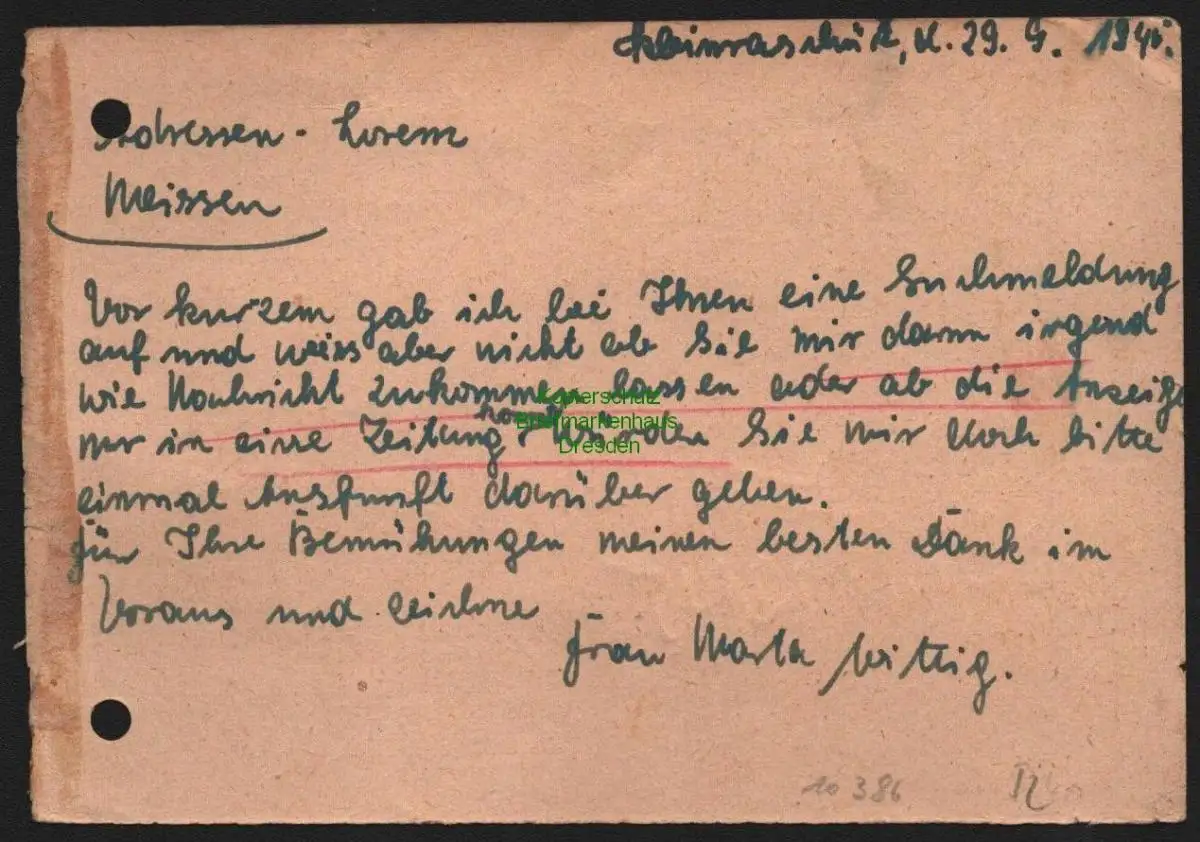 Kleinraschütz, d. 29. 9. 194
Adressen - Lorenz
Meissen
Vor kurzem gab ich bei Ihnen eine Suchmeldung
auf und weiss aber nicht ob Sie mir dann irgend
wie Nachricht zukommen lassen oder ob die Anzeige
nur in eine Zeitung kommt. Würden Sie mir doch bitte
einmal Auskunft darüber geben.
Für Ihre Bemühungen meinen besten Dank im
Voraus und zeichne
Frau Marta Wittig.
10 386
Kopierschutz
Briefmarkenhaus
Dresden